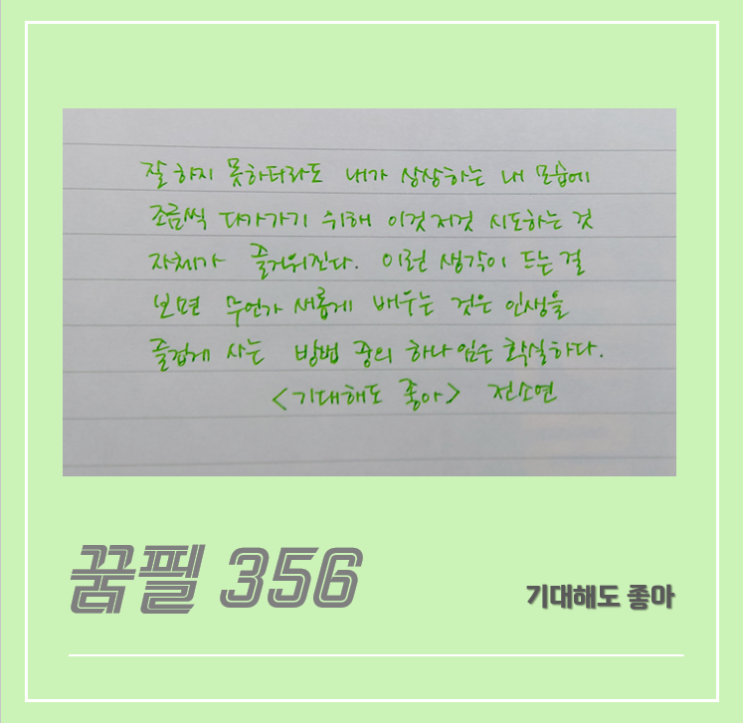 잘 하지 못하더라도 내가 상상하는 내 모습에
조금씩 다가가기 위해 이것 저것 시도하는 것
자체가 즐거워진다. 이런 생각이 드는 걸
보면 무언가 새롭게 배우는 것은 인생을
즐겁게 사는 방법 중의 하나 임은 확실하다.
<기대해도 좋아> 전소연
꿈필 356
기대해도 좋아